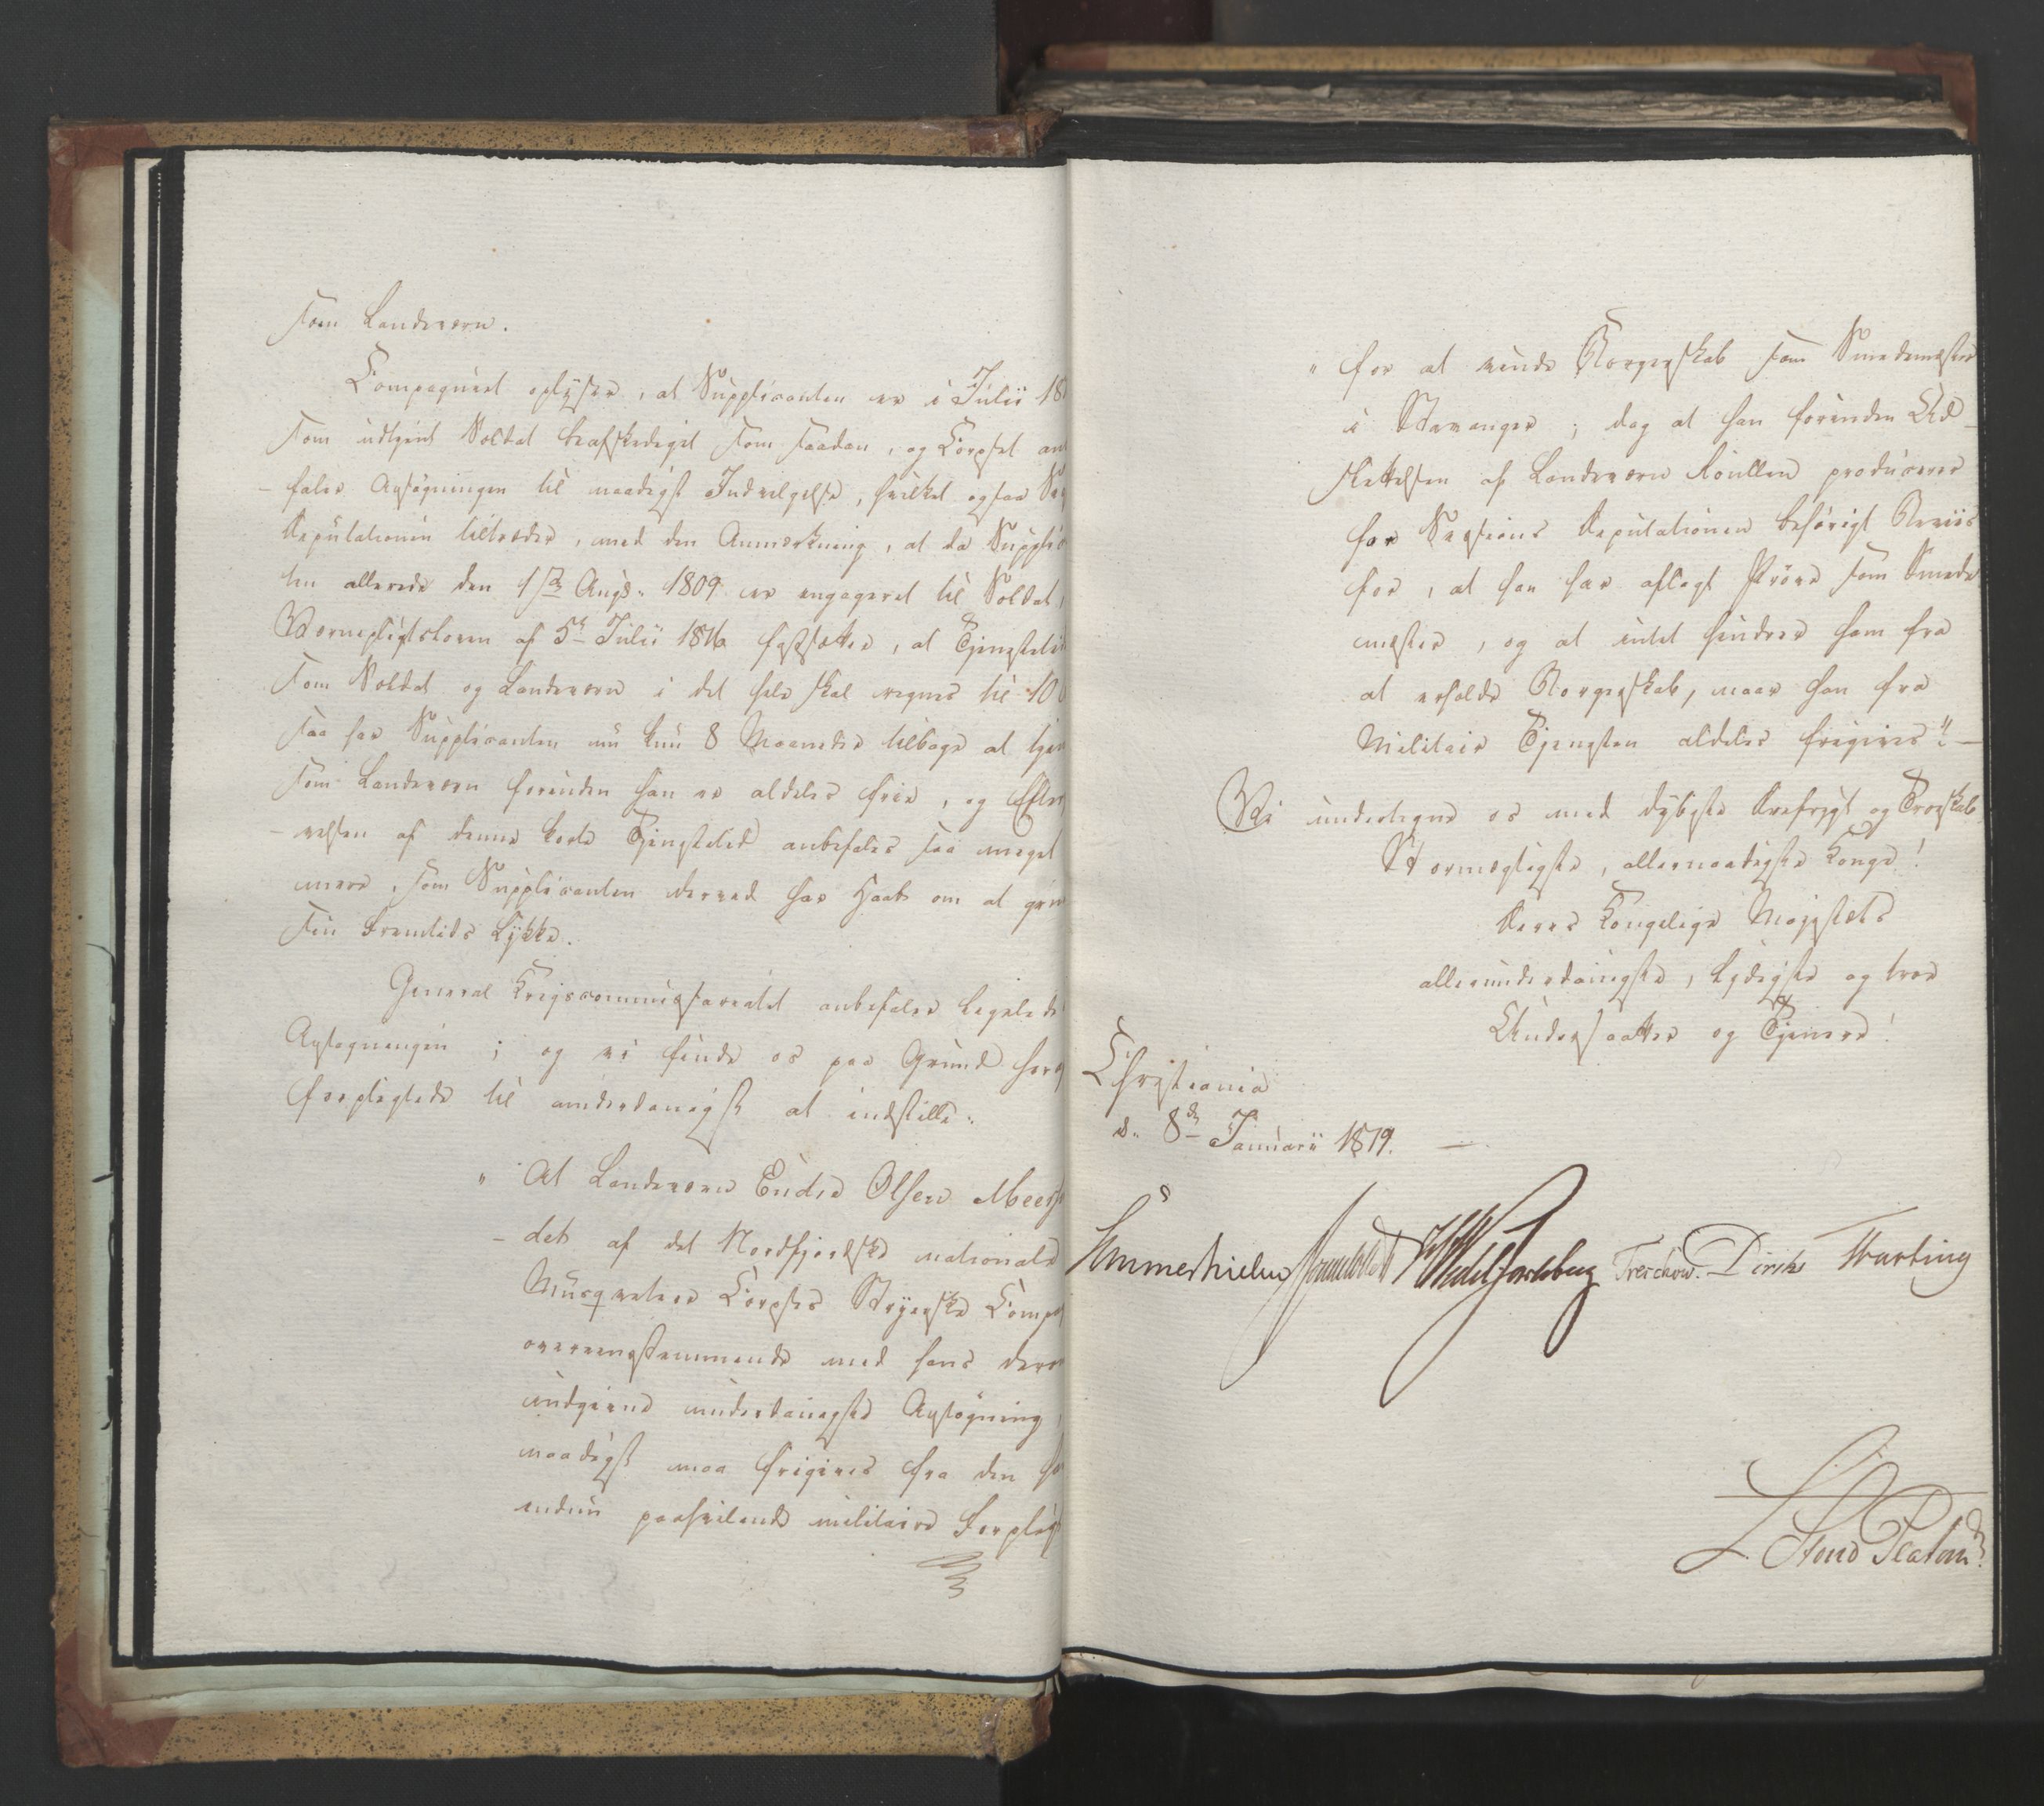 som Landeværn.
Compagniet oplyser, at Supplicanten er i Julii 18
som udtjent Soldat beafskediget som saadan, og Corpset an
-faler Ansøgningen til naadigst Indvilgelse, hvilket ogsaa
Deputationen tiltræder, med den Anmærkning, at da Supplic
ten allerede den 1ste Augs. 1809 er engageret til Soldat,
Værnepligtsloven af 5te Julii 1816 fastsætter, at Tjenestetid
som Soldat og Landeværn i det hele skal regnes til 10
saa har Supplicanten nu kun 8 Maaneder tilbage at tjen
som Landeværn forinden han er aldeles frie, og Efter
-velsen af denne korte Tjenestetid anbefales saa meget
mere, som Supplicanten derved har Haab om at
sin Fremtids Lykke.
General Krigscommissariatet anbefaler ligeledes
Ansøgningen; og vi finde os paa Grund her
forpligtede til underdanigst at indstille:
" At Landeværn Endre Olsen
-det af det Nordfjordske nationale
Musqueteer Corpses Stryenske Comp
overeensstemmende med hans der
indgivne underdanigste Ansøgning,
naadigst maa frigives fra den h
endnu paahvilende militaire Forplig
" for at vinde Borgerskab som Smedemester
i Stavanger; dog at han forinden Ud-
slettelsen af Landeværn Roullen producerer
for Sessions Deputationen behørigt Beviis
for, at han har aflagt Prøve som Smede
mester, og at intet hindrer ham fra
at erholde Borgerskab, naar han fra
Militair Tjenesten aldeles frigives". —
Vi undertegne os med dybeste Ærefrygt og Troeskab
Stormægtigste, allernaadigste Konge!
Deres Kongelige Majestæts
allerunderdanigste, lydigste og troe
Undersaatter og Tjenere!
Christiania
d. 8de Januarii 1819. —
Sommerhielm Wedel Jarlsberg Treschow. Diriks Motzfeldt